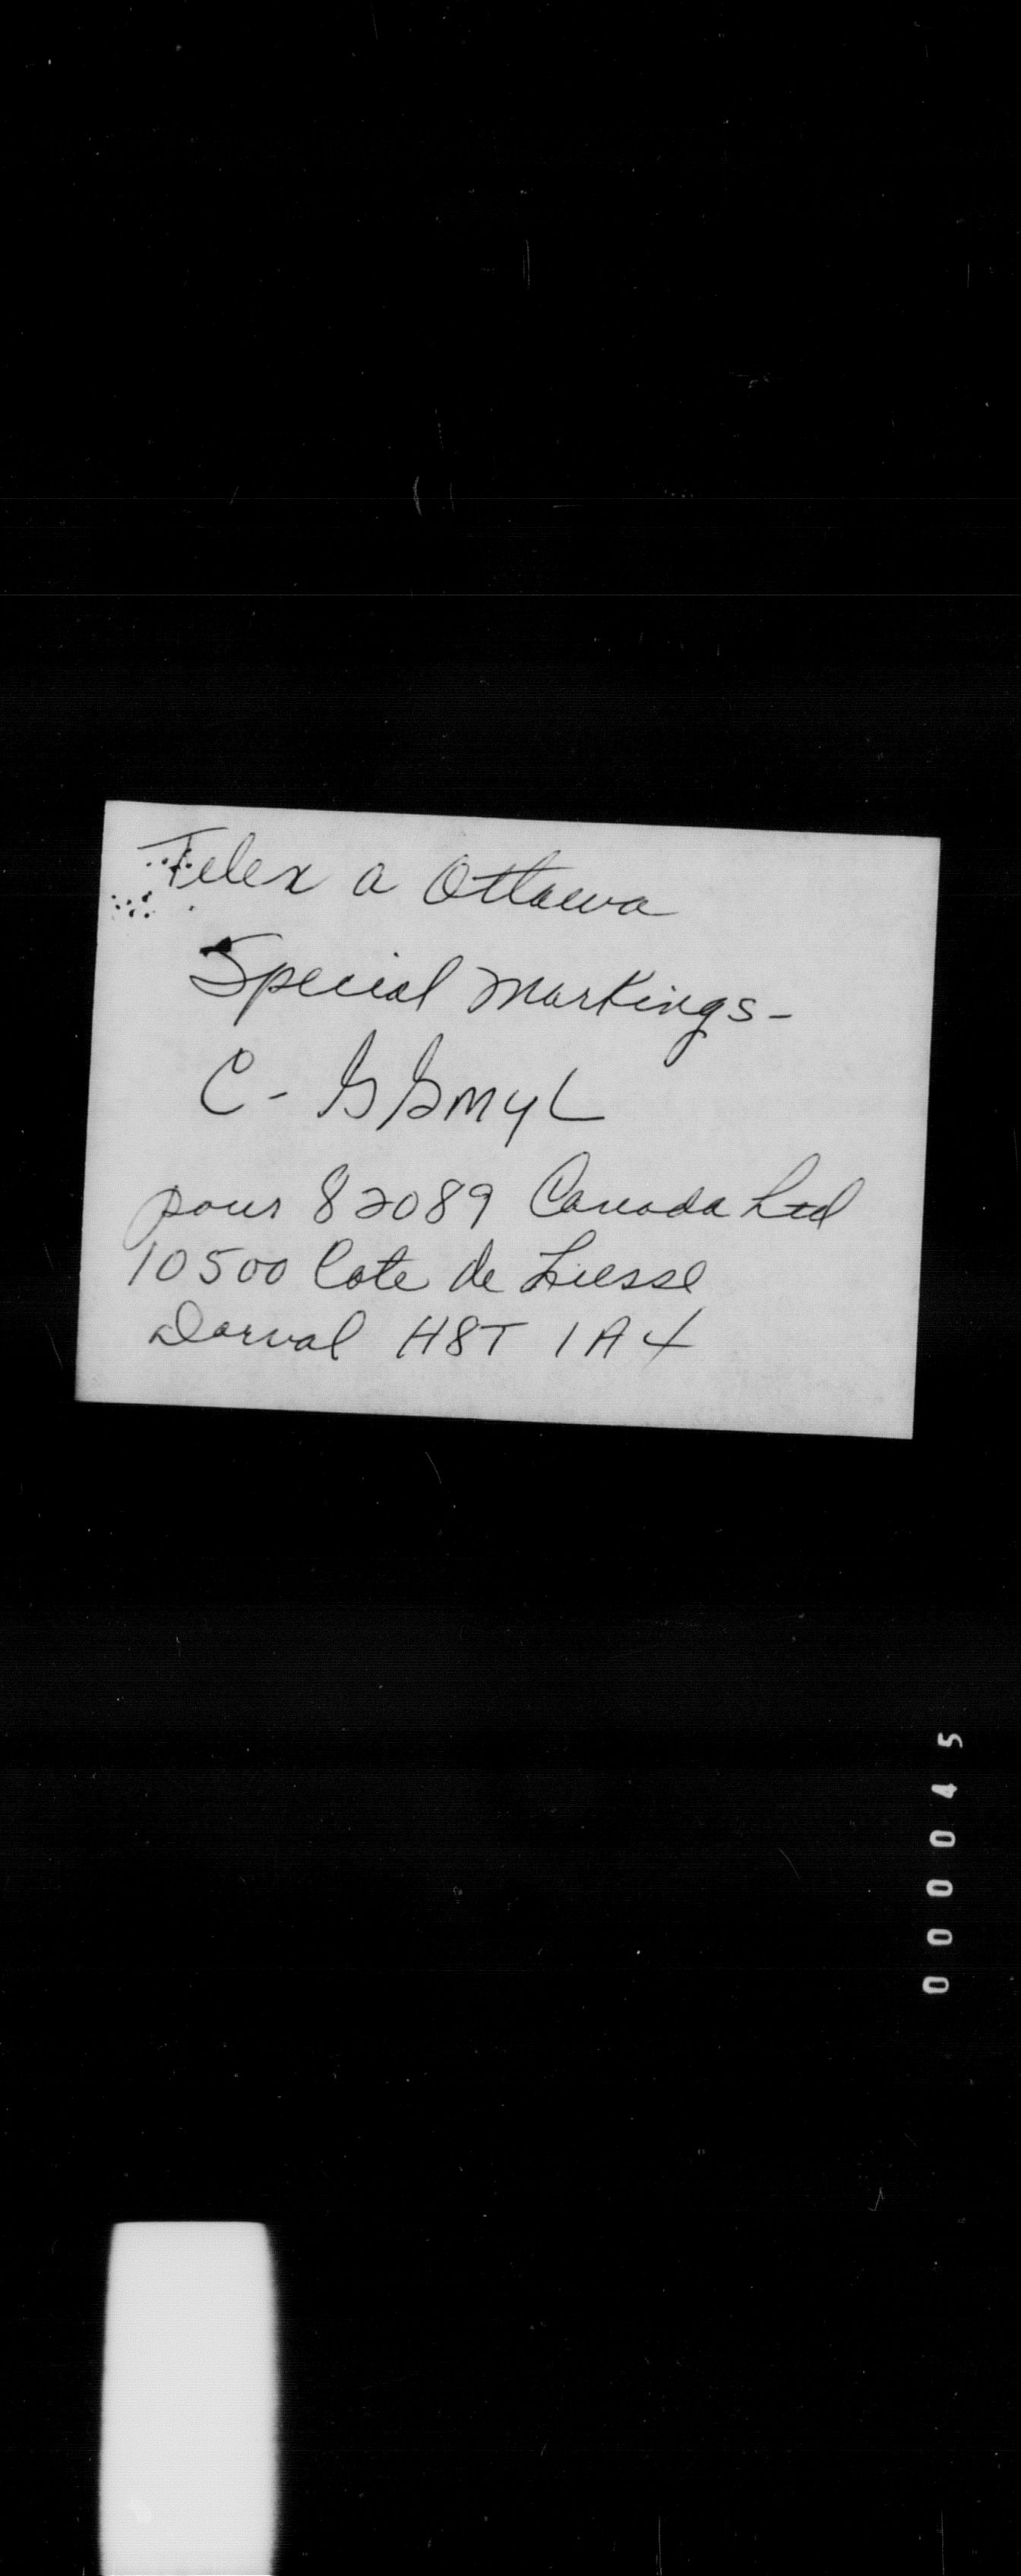 Telex a Ottawa
Special Markings-
C- GGMYL
pour 82089 Canada Ltd
10500 Cote de Liesse
Dorval H8T 1A4
000045